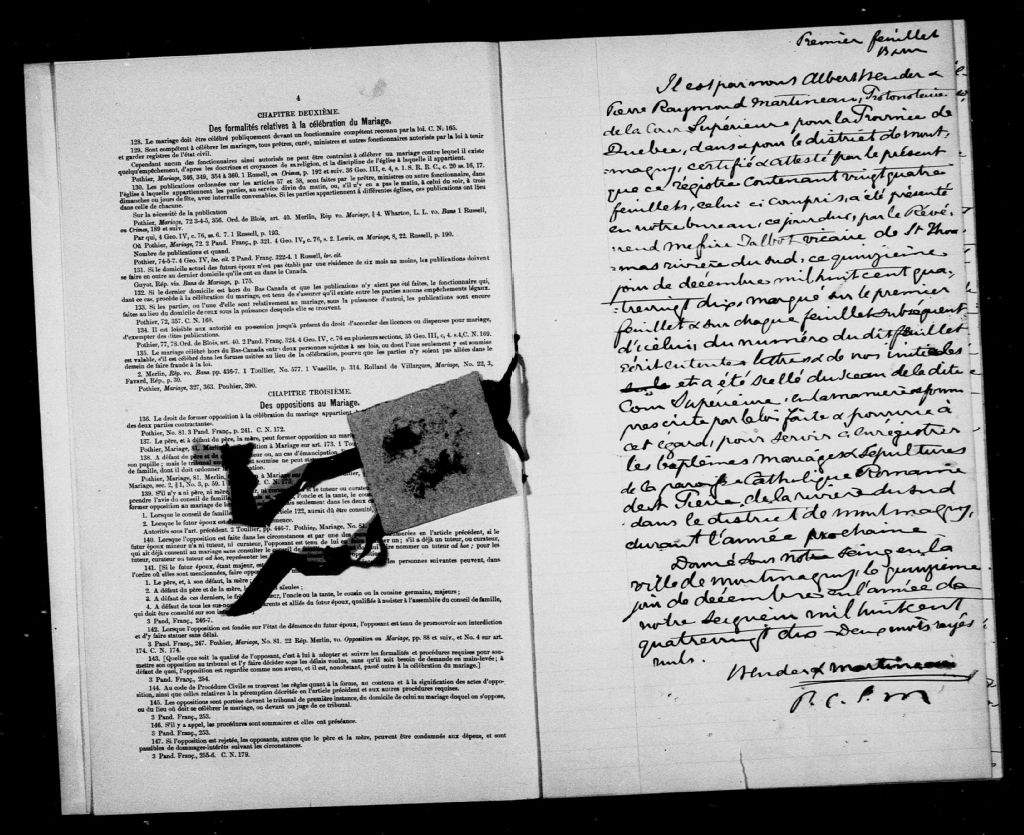 4
CHAPITRE DEUXIÈME.
Des formalités relatives à la célébration du Mariage.
128. Le mariage doit être célébré publiquement devant un fonctionnaire compétent reconnu par la loi. C. N. 165.
129. Sont compétents à célébrer les mariages, tous prêtres, curés, ministres et autres fonctionnaires autorisés par la loi à tenir
et garder registres de l'état civil.
Cependant aucun des fonctionnaires ainsi autorisés ne peut être contraint à célébrer un mariage contre lequel il existe
quelqu'empêchement, d'après les doctrines et croyances de sa religion, et la discipline de l'église à laquelle il appartient.
Pothier, Mariage, 346, 349, 354 à 360. 1 Russell, on Crimes, p. 192 et suiv. 36 Geo. III, c. 4, s 1. S. R. B. C., c. 20 ss. 16, 17.
130. Les publications ordonnées par les articles 57 et 58, sont faites par le prêtre, ministre ou autre fonctionnaire, dans
l'église à laquelle appartiennent les parties, au service divin du matin, ou, s'il n'y en a pas le matin, à celui du soir, à trois
dimanches ou jours de fête, avec intervalle convenables. Si les parties appartiennent à différentes églises, ces publications ont lieu
dans celle de chacune.
Sur la nécessité de la publication
Pothier, Mariage, 72 3-4-5, 356. Ord. de Blois, art. 40. Merlin, Rép vo. Mariage, § 4. Wharton, L. L. vo. Bans 1 Russell,
on Crimes, 189 et suiv.
Par qui, 4 Geo. IV, c. 76, ss. 6. 7. 1 Russell, p. 193.
Où Pothier, Mariage, 72. 2 Pand. Franç., p. 321. 4 Geo. IV, c. 76, s. 2. Lewis, on Mariage, 8, 22. Russell, p. 190.
Nombre de publications et quand.
Pothier, 74-5-7. 4 Geo. IV, loc. cit. 2 Pand. Franç. 322-4. 1 Russell, loc. cit.
131. Si le domicile actuel des futurs époux n'est pas établi par une résidence de six mois au moins, les publications doivent
se faire en outre au dernier domicile qu'ils ont eu dans le Canada.
Guyot, Rép. vis. Bans de Mariage, p. 175.
132. Si le dernier domicile est hors du Bas Canada et que les publications n'y aient pas été faites, le fonctionnaire qui,
dans ce cas, procède à la célébration du mariage, est tenu de s'assurer qu'il n'existe entre les parties aucuns empêchements légaux.
133. Si les parties, ou l'une d'elles sont relativement au mariage, sous la puissance d'autrui, les publications sont encore
faites au lieu du domicile de ceux sous la puissance desquels elle se trouvent.
Pothier, 72, 357. C. N. 168.
134. Il est loisible aux autorité en possession jusqu'à présent du droit d'accorder des licences ou dispenses pour mariage,
d'exempter des dites publications.
Pothier, 77, 78. Ord. de Blois, art. 40. 2 Pand. Franç. 324. 4 Geo. IV, c. 76 en plusieurs sections, 35 Geo. III, c. 4, s. 4, C. N. 169.
135. Le mariage célébré hors du Bas-Canada entre deux personnes sujettes à ses lois, ou dont l'une seulement y est soumise
est valable, s'il est célébré dans les formes usitées au lieu de la célébration, pourvu que les parties n'y soient pas allées dans le
dessein de faire fraude à la loi.
2. Merlin, Rép. vo. Bans. pp 436-7. 1 Toullier, No. 577. 1 Vazeille, p. 314. Rolland de Villargues, Mariage, No. 22, 3,
Favard, Rép., p. 30.
Pothier, Mariage, 327, 363. Pouhier, 390.
CHAPITRE TROISIÈME.
Des oppositions au Mariage.
136. Le droit de former opposition à la célébration du mariage appartient
des deux parties contractantes.
Pothier, No. 81. 3 Pand. Franç., p. 241. C. N. 172.
137. Le père, et à défaut du père, la mère, peut former opposition au mar
Pothier, Mariage, 81. position à Mariage sur art. 173. 1 To
138. A défaut de père et de
son pupille; mais le tribunal
famille, dont il doit ordonner
Pothier, Mariage, 81. Merlin
Mariage, sec. 2, § 1, No. 5, p. 59. 1
139. S'il n'y a ni père, ni mère
prendre l'avis du conseil de famille
former opposition au mariage de
1. Lorsque le conseil de famille
2. Lorsque le futur époux est
Autorités sous l'art. précédent. 2 Toullier, pp. 446-7. Pothier, Mariage, No. 81
140. Lorsque l'opposition est faite dans les circonstances et par une des
futur époux mineur n'a ni tuteur, ni curateur, l'opposant est tenu de lui en
qui ait déjà consenti au mariage sans consulter le conseil
tuteur, curateur ou tuteur ad hoc, représenter les
141. [Si le futur époux, étant majeur, est
l'ordre où elles sont mentionnées, faire oppos
1. Le père, et, à son défaut, la mère;
2. A défaut du père et de la mère,
3. A défaut de ces derniers, le
4. A défaut de tous les sus-nom arents et alliés du futur époux, qualifiés à assister à l'assemblée du conseil de famille,
qui doit être consulté sur son
3 Pand, Franç., 246-7.
142. Lorsque l'opposition est fondée sur l'état de démence du futur époux, l'opposant est tenu de promouvoir son interdiction
et d'y faire statuer sans délai.
3 Pand. Franç., 247. Pothier, Mariage, No. 81. 22 Rép. Merlin, vo. Opposition au Mariage, pp. 88 et suiv., et No. 4 sur art.
174. C. N. 174.
143. [Quelle que soit la qualité de l'opposant, c'est à lui à adopter et suivre les formalités et procédures requises pour sou-
mettre son opposition au tribunal et l'y faire décider sous les délais voulus, sans qu'il soit besoin de demande en main-levée; à
défaut de quoi, l'opposition est regardée comme non avenue, et il est, nonobstant, passé outre à la célébration du mariage.]
3 Pand. Franç., 254.
144. Au code de Procédure Civile se trouvent les règles quant à la forme, au contenu et à la signification des actes d'oppo-
sition, ainsi que celles relatives à la péremption décrétée en l'article précédent et aux autres procédures requises.
145. Les oppositions sont portées devant le tribunal de première instance, du domicile de celui au mariage duquel on s'oppose,
ou du lieu où doit se célébrer le mariage, ou devant un juge de ce tribunal.
3 Pand, Franç., 253.
146. S'il y a appel, les procédures sont sommaires et elles ont préséance.
3 Pand. Franç., 253.
147. Si l'opposition est rejetée, les opposants, autres que le père et la mère, peuvent être condamnés aux dépens, et sont
passibles de dommages-intérêts suivant les circonstances.
3 Pand. Franç., 255-6. C. N. 179.
Premier feuillet
B&M
Il est par nous Albert Bender &
Pierre Raymond Martineau, Protonotaire
de la Cour Supérieure pour la Province de
Quebec, dans & pour le district de Mont-
magny, certifié & attesté par le présent
que ce régistre contenant vingt quatre
feuillets, celui ci compris, a été présenté
en notre bureau, ce jourdui, par le Révé-
rend Messire Talbot vicaire de St Thom
mas rivière du sud, ce quinzième
jour de décembre mil huit cent qua-
trevingt dix, marqué sur le premier
feuillet & sur chaque feuillet subséquent
d'icelui, du numéro du dit feuillet
écrit en toutes lettres & de nos initiales
et a été scellé du sceau de la dite
Cour Supérieure, en la manière & forme
prescrite par la loi faite & pourvue à
cet égard, pour servir à enrégistrer
les Baptêmes Mariages & Sépultures
de la paroisse Catholique Romaine
de St Pierre, de la rivière du sud
dans le district de Montmagny,
durant l'année prochaine.
Donné sous notre seing en la
ville de Montmagny, le quinzième
jour de décembre en l'année de
notre Seigneur mil huit cent
quatrevingt dix - Deux mots rayés
nuls.
Bender & Martineau
P. C. S. M